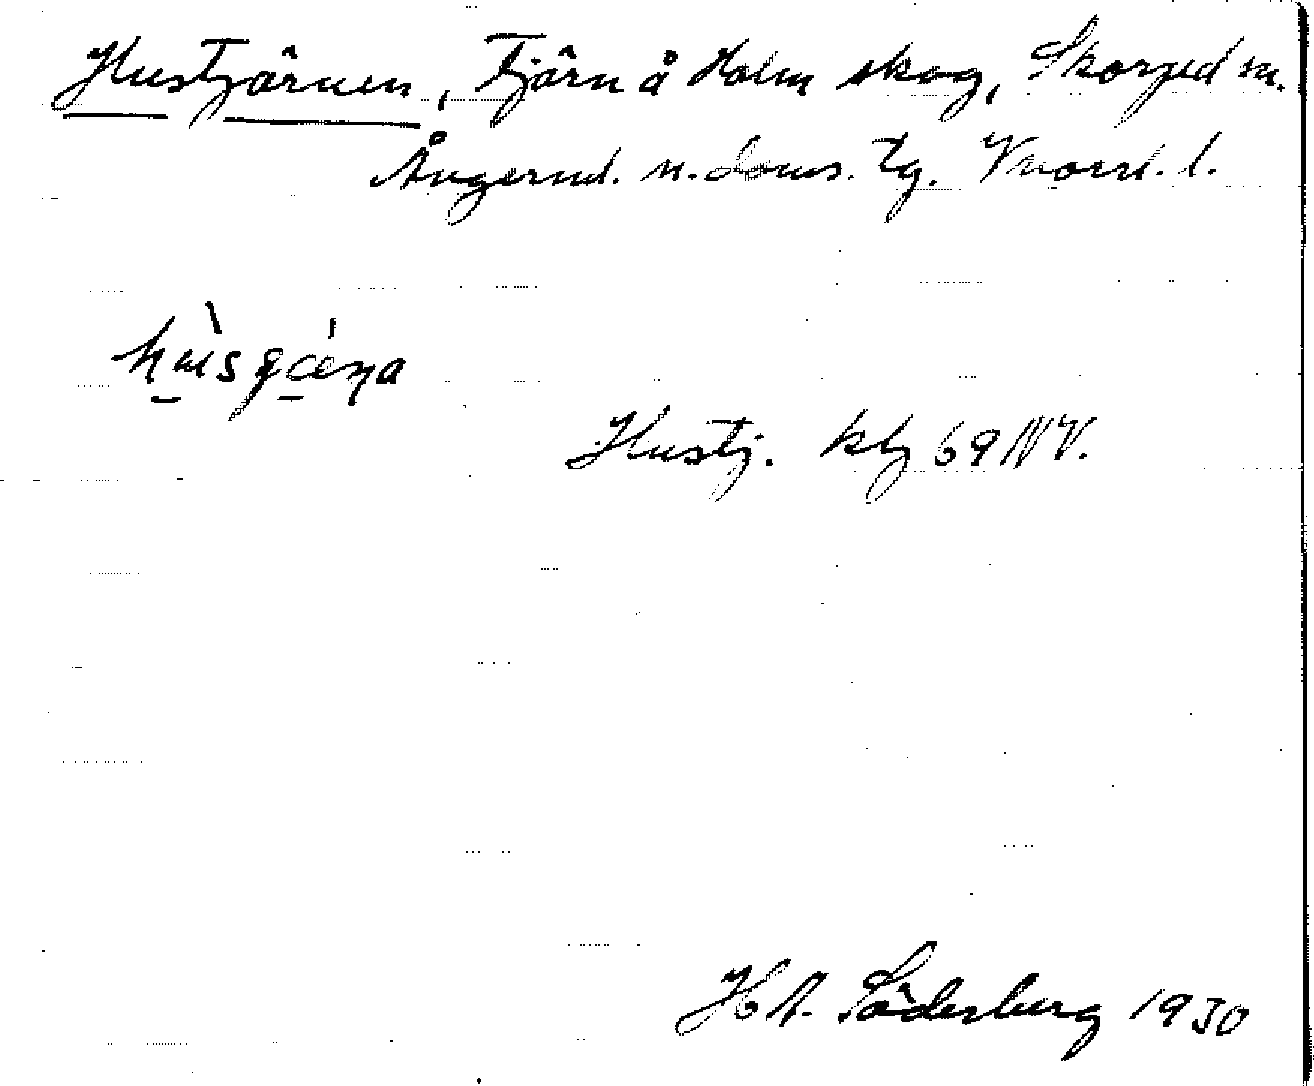 Hustjärnen, Tjärn å Holm skog, Skorped sn.
Ångerml. n. doms. tg. Vnorrl. l.
Hustj. kbg 69 NV.
H A. Söderberg 1930